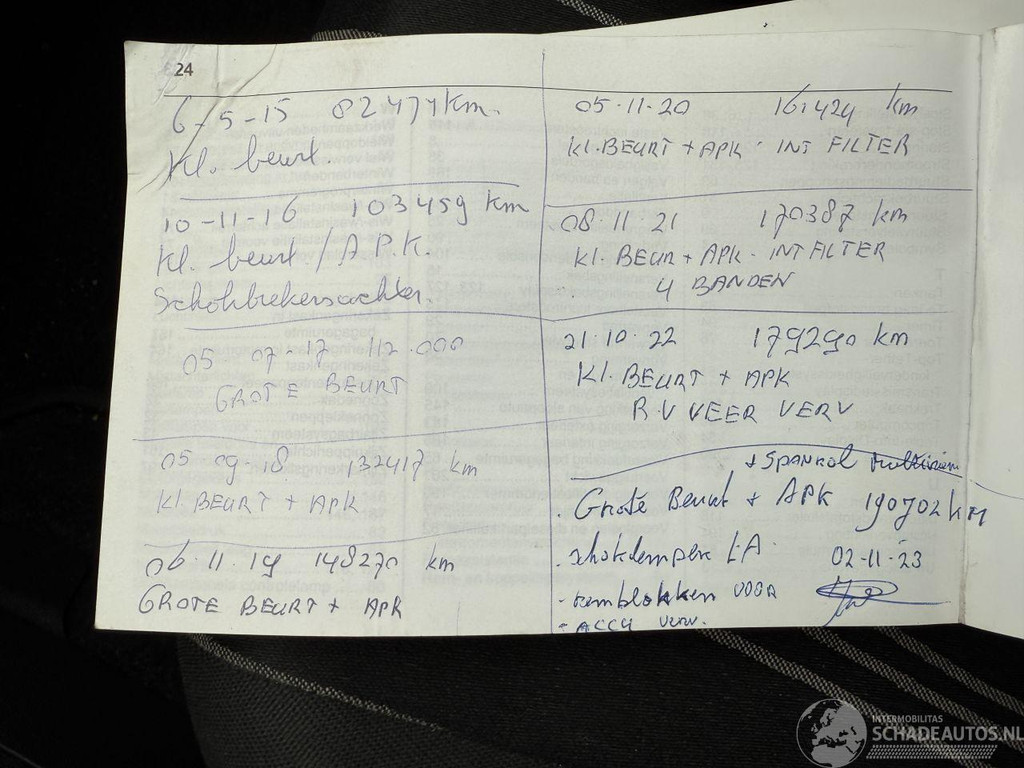 24
6-5-15 82474 km.
Kl. beurt.
10-11-16 103459 km
Kl. beurt / A.P.K.
Schokbrekers achter.
05 07-17 112.000
GROTE BEURT
05 09-18 132417 km
Kl. BEURT + APK
06.11.19 148270 km
GROTE BEURT + APK
05.11-20 161424 km
Kl. BEURT + APK - INT FILTER
08.11.21 170387 km
Kl. BEUR + APK - INT FILTER
4 BANDEN
21.10.22 179290 km
Kl. BEURT + APK
R.V VEER VERV
+ SPANROL
Grote Beurt + APK 190702 KM
- schokdemper L.A 02-11-23
- remblokken VOOR
- ACCU VERV.
INTERMOBILITAS
SCHADEAUTOS.NL